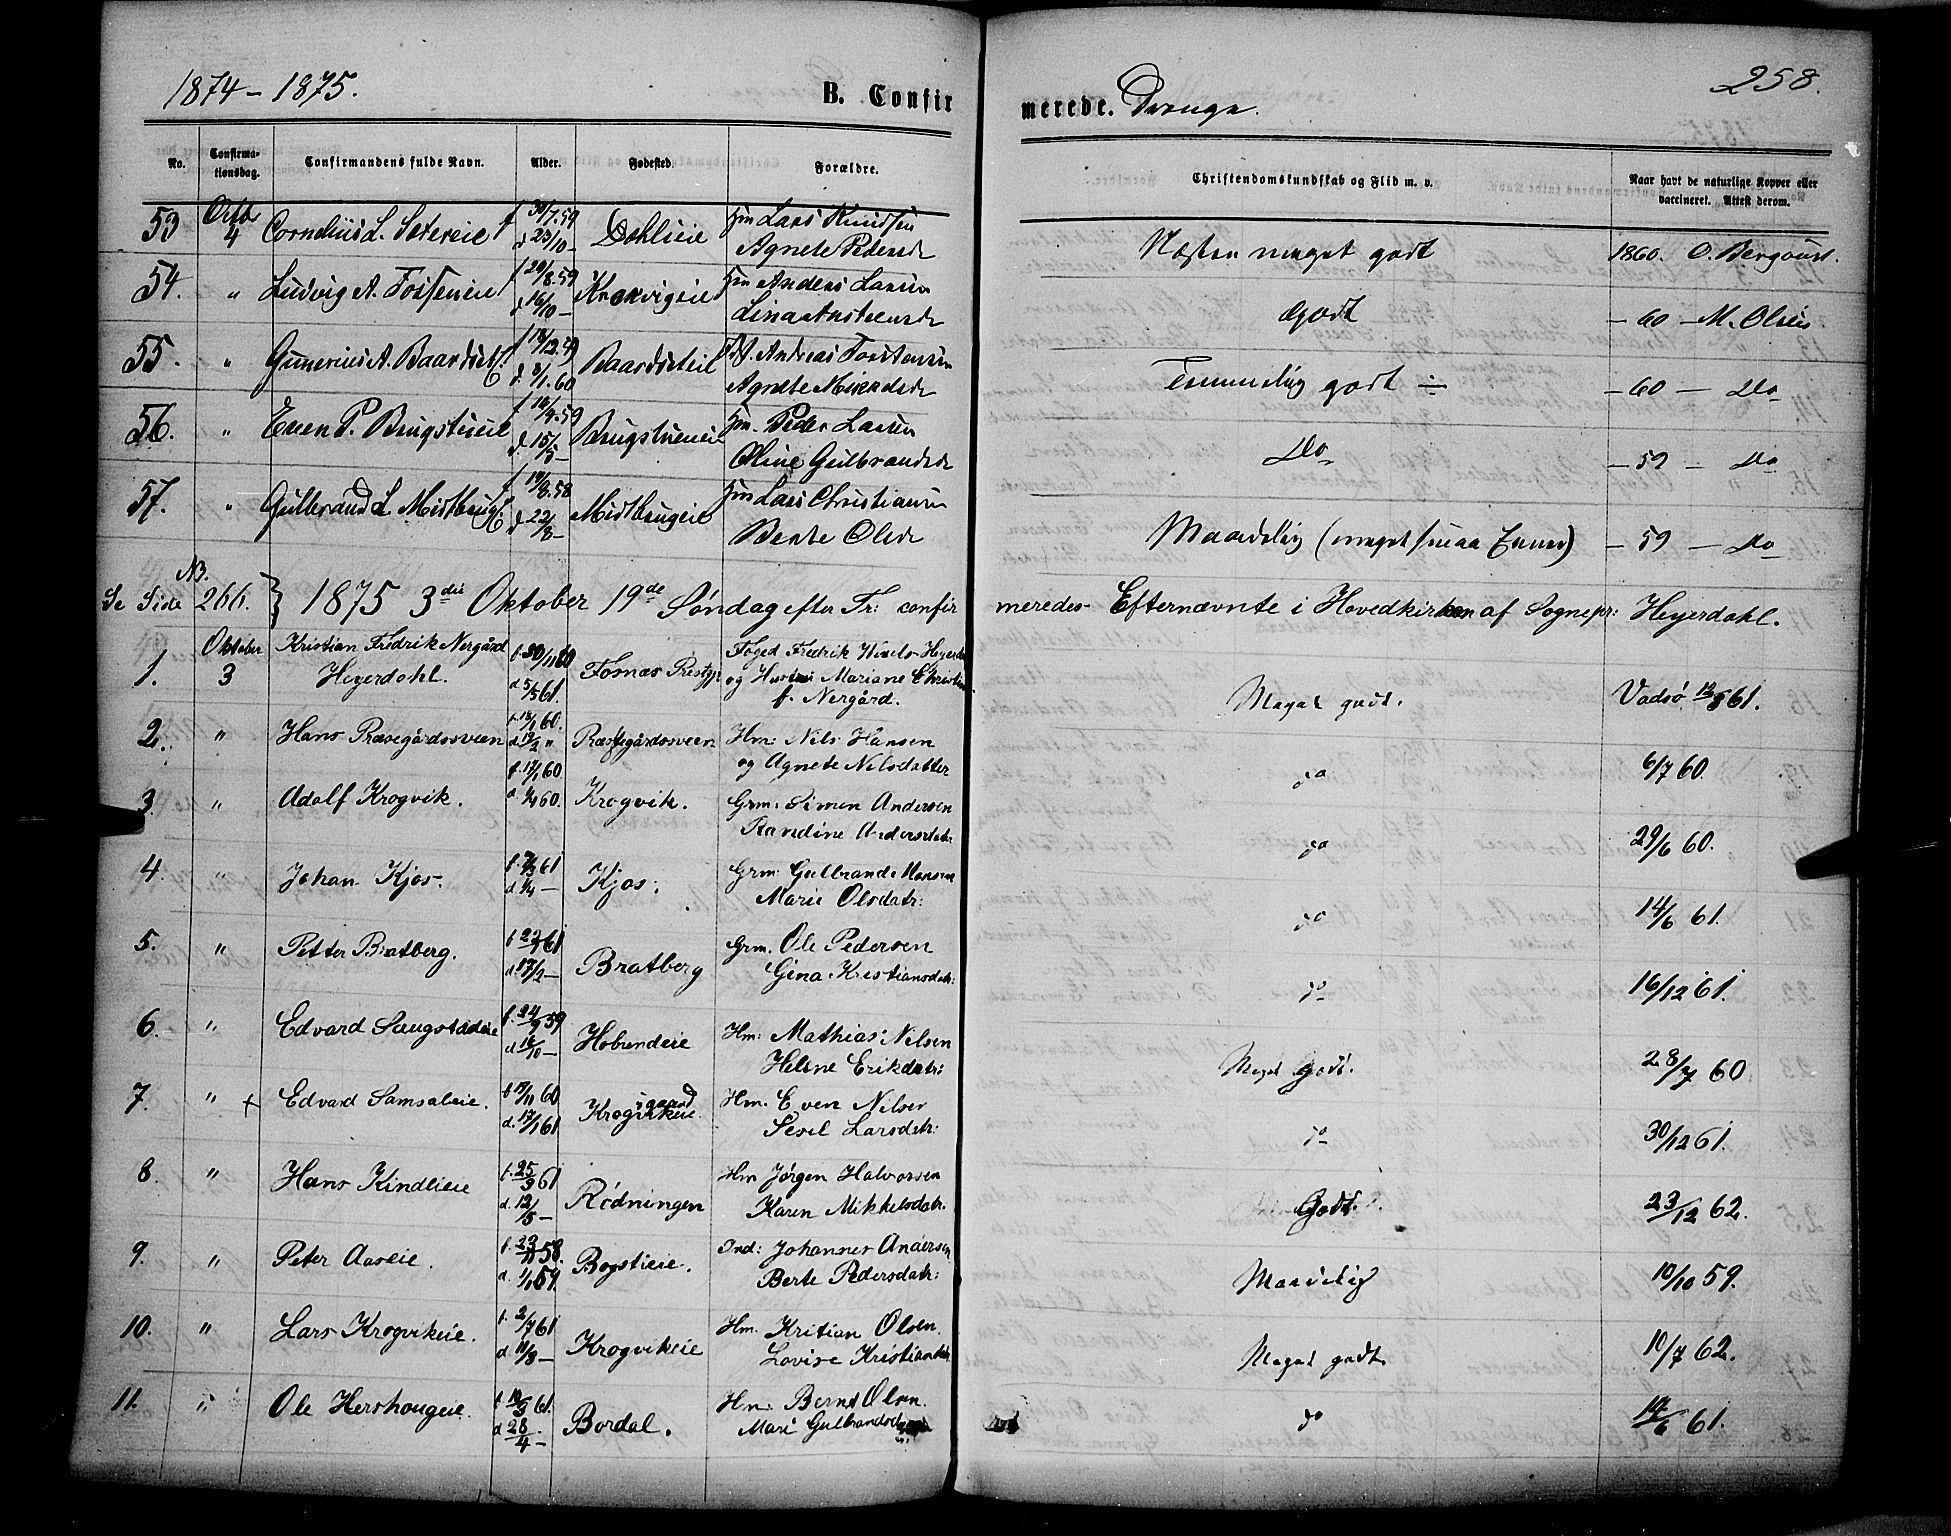 1874 - 1875. B. Confirmerede. Drenge. 258.
No. Confirmationsdag. Confirmandens fulde Navn. Alder. Fødested. Forældre. Christendomskundskab og Flid m. v. Naar havt de naturlige Kopper eller vaccineret. Attest derom.
53 Octbr 4 Cornelius L. Sætereie f 30/7.59 d 23/10 - Dohlieie Hm Lars Knudsen Agnete Pedersd. Næsten meget godt 1860. O. Bergaust.
54. " Ludvig A. Fosseneie f 20/8.59 d 16/10 - Krokvigeie Hm Anders Larsen Lina Anstensd. Godt - 60 - M. Olsen
55. " Gunerius A. Baardset f 18/12.59 d. 8/1.60 Baardseteie Andreas Torstensen Agnete Mikkelsd. Temmelig godt ÷ - 60 - Do
56. " Even P. Brugstueie f 16/4.59 d. 15/5 - Brugstueneie Hm. Peder Larsen Oline Gulbrandsd. Do - 59 - Do
57. " Gulbrand L Midtbrug f 14/8.58 d 22/8 - Midtbrugeie Hm Lars Christiansen Berte Olsd. Maadelig (meget smaa Evner) - 59 - Do
NB.
Se Side 266. } 1875 3die Oktober 19de Søndag efter Tr: confirmeredes Efternævnte i Hovedkirken af Sognepr: Heyerdahl.
1. Oktober 3 Kristian Fredrik Nergård Heyerdahl. f. 30/11 60 d. 5/5 61. Fosnæs Prestgj. Foged Fredrik Heyerdahl og Hustru Mariane Christine f. Nergård. Meget godt. Vadsø 12/8 61.
2. " Hans Præsegårdssveen f. 18/1 60. d. 19/2 " Præstegårdssveen Hm: Nils Hansen og Agnete Nilsdatter do 6/7 60.
3. " Adolf Krogvik. f. 17/1 60 d 1/4 60. Krogvik. Grm: Simen Andersen Randine Andersdatr. do 29/6 60.
4. " Johan Kjos. f. 7/3 61 d. 1/4 - Kjos. Grm: Gulbrand Hansen Marie Olsdatr: do 14/6 61.
5. " Petter Bratberg. f. 22/1 61 d. 17/2 - Bratberg Grm. Ole Pedersen Gina Kristiansdatr: do 16/12 61.
6. " Edvard Saugstadeie f. 24/9 59 d. 16/10 - Hobendeie Hm: Mathias Nilsen Helene Eriksdatr: Meget godt. 28/7 60
7. " + Edvard Samsaleie. f. 19/11 60 d. 17/1 61 Krogvikeie. Hm. Even Nilsen Sesel Larsdatr: do 30/12 61.
8. " Hans Kindlieie f. 25/3 61 d. 12/5 - Rødningen Hm Jørgen Halvorsen Karen Mikkelsdatr. Godt. 23/12 62.
9. " Peter Aaseie. f. 23/11 58. d. 1/1 59. Bogstieie. Ind: Johannes Andersen Berte Pedersdatr: Maadelig 10/10 59.
10. " Lars Krogvikeie. f. 2/7 61 d 11/8 - Krogvikeie Hm. Kritian Olsen. Lovise Kristiansdtr. Meget godt. 10/7 62.
11. " Ole Hershougeie. f 10/3 61. d 28/4 - Bordal. Hm: Bernt Olsen. Mari Gulbrandsdtr do 14/6 61.